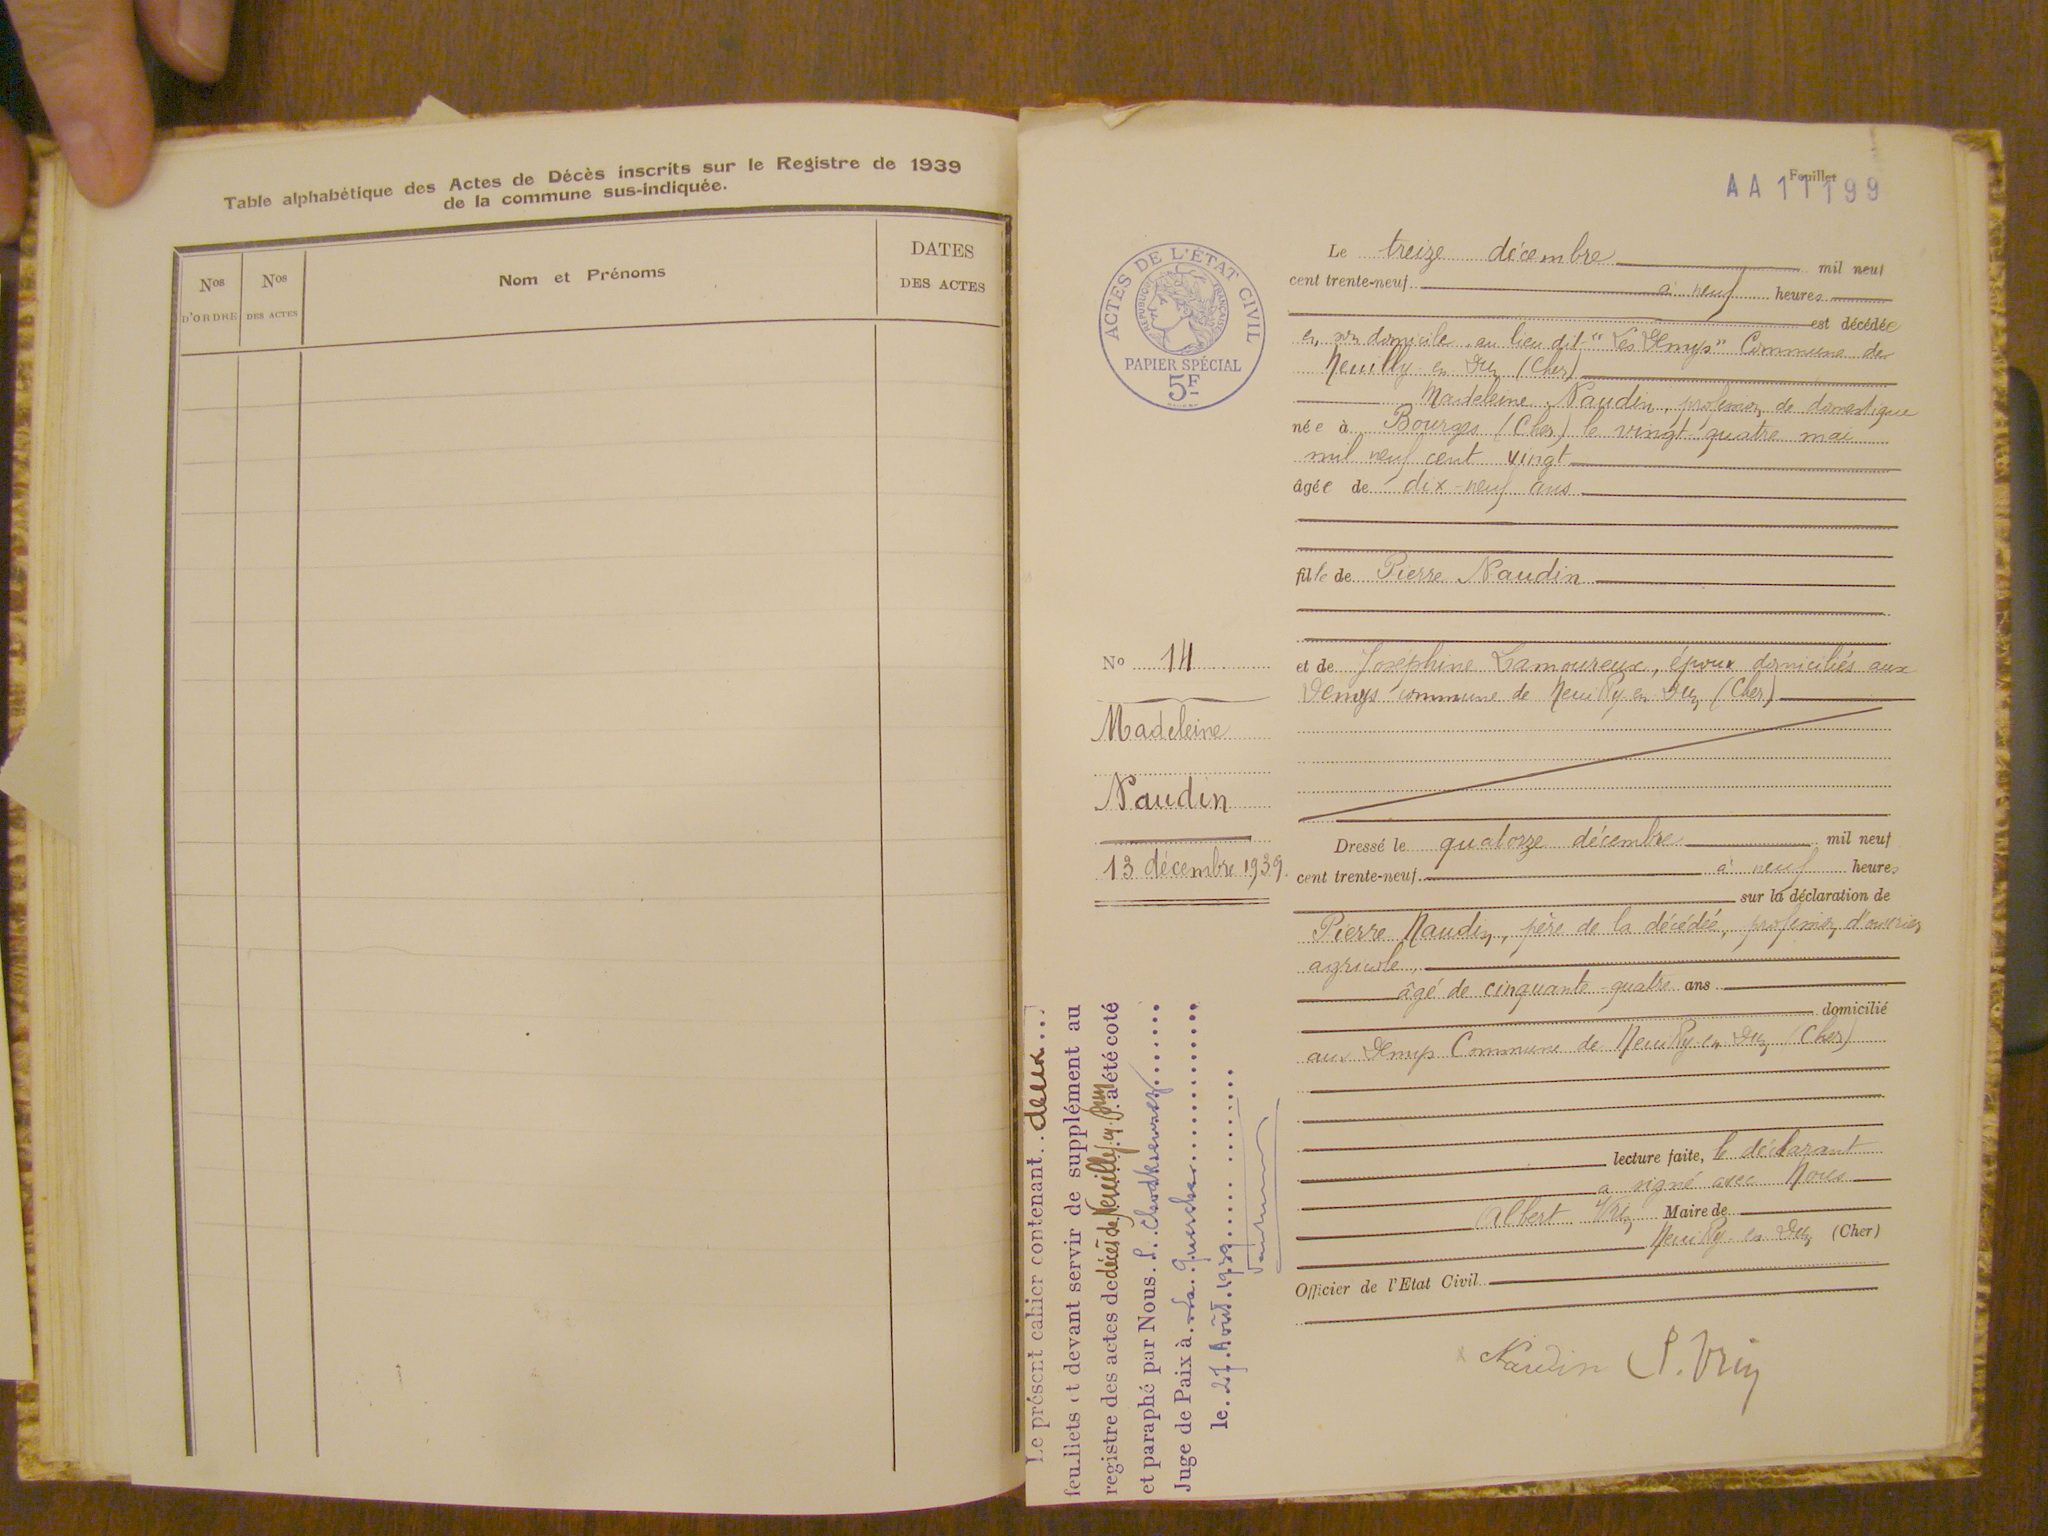 Table alphabétique des Actes de Décès inscrits sur le Registre de 1939
de la commune sus-indiquée.
Nos D'ORDRE
Nos DES ACTES
Nom et Prénoms
DATES DES ACTES
Feuillet
AA 11199
ACTES DE L'ÉTAT CIVIL
RÉPUBLIQUE FRANÇAISE
PAPIER SPÉCIAL
5F
Le treize décembre mil neuf
cent trente-neuf à neuf heures
est décédée
en son domicile au lieu dit "Les Demys" Commune de
Neuilly en Dun (Cher)
Madeleine Naudin, profession de domestique
née à Bourges (Cher) le vingt-quatre mai
mil neuf cent vingt
âgée de dix-neuf ans
fille de Pierre Naudin
et de Joséphine Lamoureux, époux domiciliés aux
Demys commune de Neuilly en Dun (Cher)
No 14
Madeleine
Naudin
13 décembre 1939.
Dressé le quatorze décembre mil neuf
cent trente-neuf à neuf heures
sur la déclaration de
Pierre Naudin, père de la décédée, profession d'ouvrier
agricole,
âgé de cinquante-quatre ans
domicilié
aux Demys Commune de Neuilly en Dun (Cher)
lecture faite, le déclarant
a signé avec Nous
Albert Maire de
Neuilly en Dun (Cher)
Officier de l'Etat Civil
Naudin
Le présent cahier contenant deux
feuillets et devant servir de supplément au
registre des actes de décès de Neuilly en Dun a été coté
et paraphé par Nous
Juge de Paix à La Guerche
le 27 Août 1939